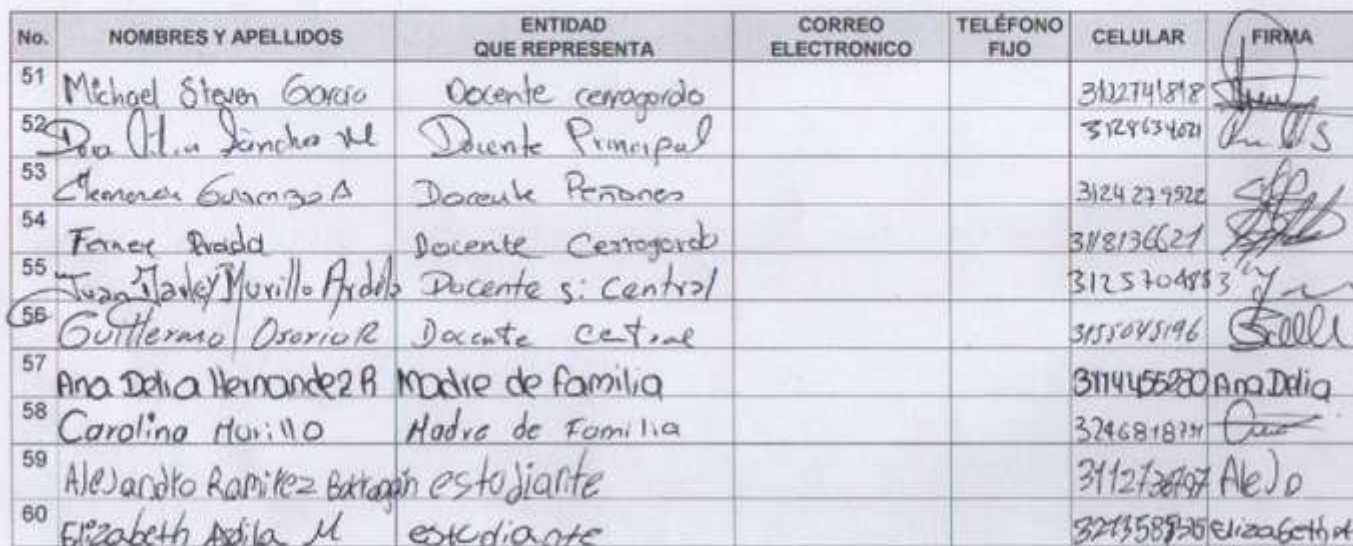 No. NOMBRES Y APELLIDOS ENTIDAD QUE REPRESENTA CORREO ELECTRONICO TELÉFONO FIJO CELULAR FIRMA
51 Michael Steven Garcia Docente cerrogordo
52 Sánchez M Docente Principal 3128634021
53 A Docente Peñones 3124279522
54 Ferney Prada Docente Cerrogordo 3118136621
55 Juan Murillo Ardila Docente s: Central
56 Guillermo Osorio R Docente Central 3155045196
57 Ana Delia Hernandez R Madre de familia 3114455280 Ana Delia
58 Carolina Murillo Madre de Familia
59 Alejandro Ramirez Barragán estudiante Alejo
60 Elizabeth M estudiante Elizabeth